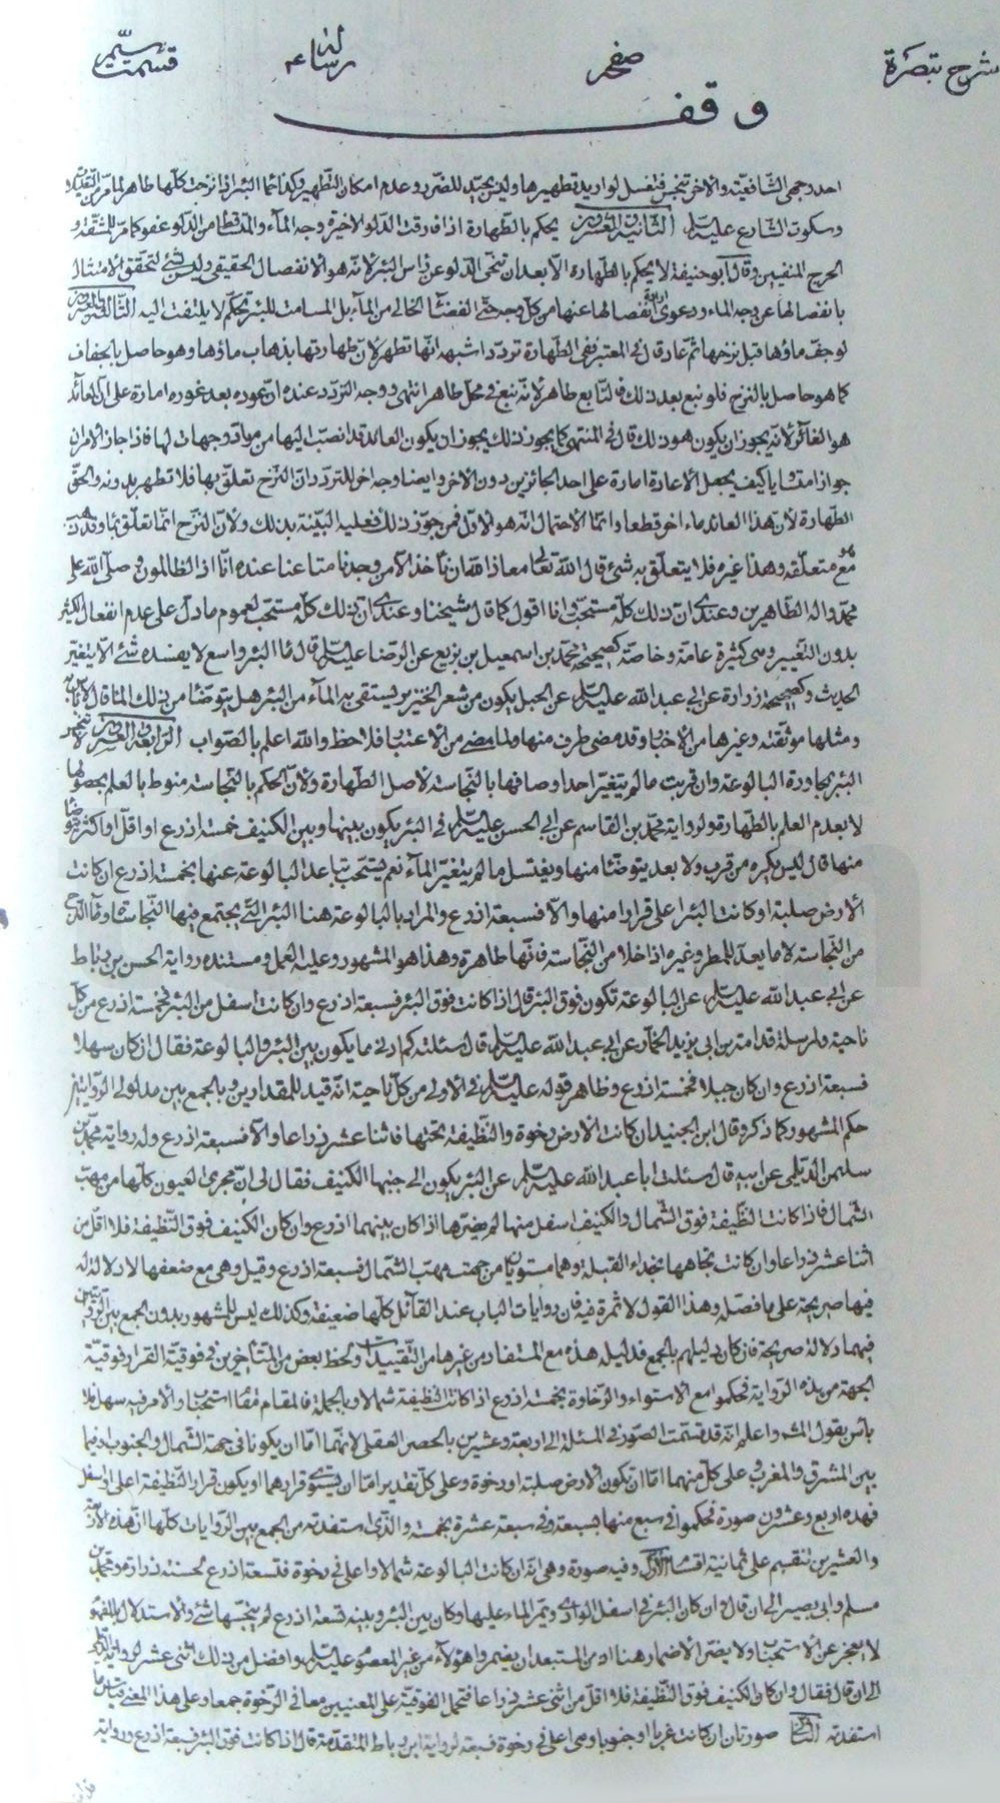 شرح تبصرة صفحہ رسالہ قسمت
وقف
احد وجهى الشافعية والاخر تنجس فتغسل لو اريد تطهيرها وليس بجيد للضرر وعدم امكان التطهير وكذا حمأة البئر اذا نزحت كلها طاهر لما مر من التقييد و
وسكوت الشارع عليه السلم الثانية والعشرون يحكم بالطهارة اذا فارقت الدلو الاخيرة وجه المآء والمتساقط من الدلو عفو كما مر للمشقة و
الحرج المنفيين وقال ابو حنيفة لا يحكم بالطهارة الا بعد ان تنحى الدلو عن رأس البئر لانه هو الانفصال الحقيقى وليس بشئ لتحقق الامتثال
بانفصالها عن وجه الماء ودعوى انفصالها عنها من كل وجه حتى الفضاء الخالى من المآء بل المسامت للبئر تحكم لا يلتفت اليه الثالثة والعشرون
لو جف ماؤها قبل نزحها ثم عاد قال فى المعتبر ففى الطهارة تردد اشبهه انها تطهر لان طهارتها بذهاب ماؤها وهو حاصل بالجفاف
كما هو حاصل بالنزح فلو نبع بعد ذلك فالنابع طاهر لانه نبع فى محل طاهر انتهى ووجه التردد عنده ان عوده بعد غوره امارة على ان العائد
هو الغائر لانه يجوز ان يكون هو ذلك قال فى المنتهى كما يجوز ذلك يجوز ان يكون العائد قد انصب اليها من مواد وجهات لها فاذا جاز الامران
جوازا متساويا كيف يجعل الاعادة امارة على احد الجائزين دون الاخر وايضا وجه اخر للتردد ان النزح تعلق بها فلا تطهر بدونه والحق
الطهارة لان هذا العائد ماء اخر قطعا وانما الاحتمال انه هو الاول فمن جوز ذلك فعليه البينة بذلك ولان النزح انما تعلق بماء وقد ذهب
متعلقه وهذا غيره فلا يتعلق به شئ قال الله تعالى معاذ الله ان نأخذ الا من وجدنا متاعنا عنده انا اذا لظالمون صلى الله على
محمد واله الطاهرين وعندى ان ذلك كله مستحب وانا اقول كما قال شيخنا وعندى ان ذلك كله مستحب لعموم ما دل على عدم انفعال الكثير
بدون التغيير وهى كثيرة عامة وخاصة كصحيحة محمد بن اسمعيل بن بزيع عن الرضا عليه السلم قال ماء البئر واسع لا يفسده شئ الا ان يتغير
الحديث وكصحيحة زرارة عن ابى عبد الله عليه السلم عن الحبل يكون من شعر الخنزير يستقى به المآء من البئر هل يتوضأ من ذلك الماء قال لا باس به
ومثلها موثقته وغيرها من الاخبار وقد مضى طرف منها ولما مضى من الاعتبار فلاحظ والله اعلم بالصواب الرابعة والعشرون لا تنجس
البئر بمجاورة البالوعة وان قربت ما لم يتغير احد اوصافها بالنجاسة لاصل الطهارة ولان الحكم بالنجاسة منوط بالعلم بحصولها
لا بعدم العلم بالطهارة ولرواية محمد بن القاسم عن ابى الحسن عليه السلم فى البئر يكون بينها وبين الكنيف خمسة اذرع او اقل او اكثر يتوضا
منها قال ليس يكره من قرب ولا بعد يتوضأ منها ويغتسل ما لم يتغير المآء نعم يستحب تباعد البالوعة عنها بخمسة اذرع ان كانت
الارض صلبة او كانت البئر اعلى قرارا منها والا فسبعة اذرع والمراد بالبالوعة هنا البئر التى يجتمع فيها النجاسة او ماء النزح
من النجاسة لا ما يعد للمطر وغيره اذا خلا من النجاسة فانها طاهرة وهذا هو المشهور وعليه العمل ومستنده رواية الحسن بن رباط
عن ابى عبد الله عليه السلم عن البالوعة تكون فوق البئر قال اذا كانت فوق البئر فسبعة اذرع وان كانت اسفل من البئر فخمسة اذرع من كل
ناحية ومرسلة قدامة بن ابى يزيد الحمار عن ابى عبد الله عليه السلم قال سئلته كم ادنى ما يكون بين البئر والبالوعة فقال ان كان سهلا
فسبعة اذرع وان كان جبلا فخمسة اذرع وظاهر قوله عليه السلم فى الاولى من كل ناحية انه قيد للمقدارين وبالجمع بين مدلولى الروايتين
حكم المشهور كما ذكر وقال ابن الجنيد ان كانت الارض رخوة والنظيفة تحتها فاثنا عشر ذراعا والا فسبعة اذرع وله رواية محمد بن
سليمن الديلمى عن ابيه قال سئلت ابا عبد الله عليه السلم عن البئر يكون الى جنبها الكنيف فقال لى ان مجرى العيون كلها من مهب
الشمال فاذا كانت النظيفة فوق الشمال والكنيف اسفل منها لم يضرها اذا كان بينهما اذرع وان كان الكنيف فوق النظيفة فلا اقل من
اثنا عشر ذراعا وان كانت تجاهها بحذاء القبلة وهما مستويان من جهة مهب الشمال فسبعة اذرع وقيل وهى مع ضعفها لا دلالة له
فيها صريحة على ما فصله وهذا القول لا ثمرة فيه فان روايات الباب عند القائل كلها ضعيفة وكذلك ليس للمشهور بدون الجمع بين الروايتين
فيهما دلالة صريحة فان كان دليلهم بالجمع فدليله هذه مع المستفاد من غيرها من التقييدات ولحظ بعض من المتأخرين فى فوقية القرار فوقية
الجهة من هذه الرواية فحكموا مع الاستواء والرخاوة بخمسة اذرع اذا كانت النظيفة شمالا وبالجملة فالمقام مقام استحباب والامر فيه سهل فلا
بأس بقول المشهور واعلم انه قد قسمت الصور فى المسئلة الى اربعة وعشرين بالحصر العقلى لانهما اما ان يكونا فى جهة الشمال والجنوب او فيما
بين المشرق والمغرب وعلى كل منهما اما ان تكون الارض صلبة او رخوة وعلى كل تقدير اما ان يستوى قرارهما او يكون قرار النظيفة اعلى او اسفل
فهذه اربع وعشرون صورة فحكموا فى سبع منها بسبعة وفى سبعة عشرة بخمسة والذى استفدته من الجمع بين الروايات كلها ان هذه الاربعة
والعشرين تنقسم على ثمانية اقسام الاول وفيه صورة وهى انه ان كانت البالوعة شمالا واعلى فى رخوة فتسعة اذرع لحسنة زرارة ومحمد بن
مسلم وابى بصير الى ان قال وان كان البئر فى اسفل الوادى ويمر الماء عليها وكان بين البئر وبينه تسعة اذرع لم ينجسها شئ والاستدلال بالمفهوم
لا يعجز عن الاستحباب ولا يضر الاضمار هنا اذ من المستبعد ان يضمر هؤلاء من غير المعصوم عليه السلم وافضل من ذلك اثنى عشر لرواية
الى ان قال فقال وان كان الكنيف فوق النظيفة فلا اقل من اثنى عشر ذراعا فتحمل الفوقية على المعنيين معا فى الرخوة جمعا وعلى هذا المعنى
استفدته الثانى صورتان ان كانت غربا او جنوبا وهى اعلى فى رخوة فسبعة لرواية ابن رباط المتقدمة قال اذا كانت فوق البئر فسبعة اذرع ورواية